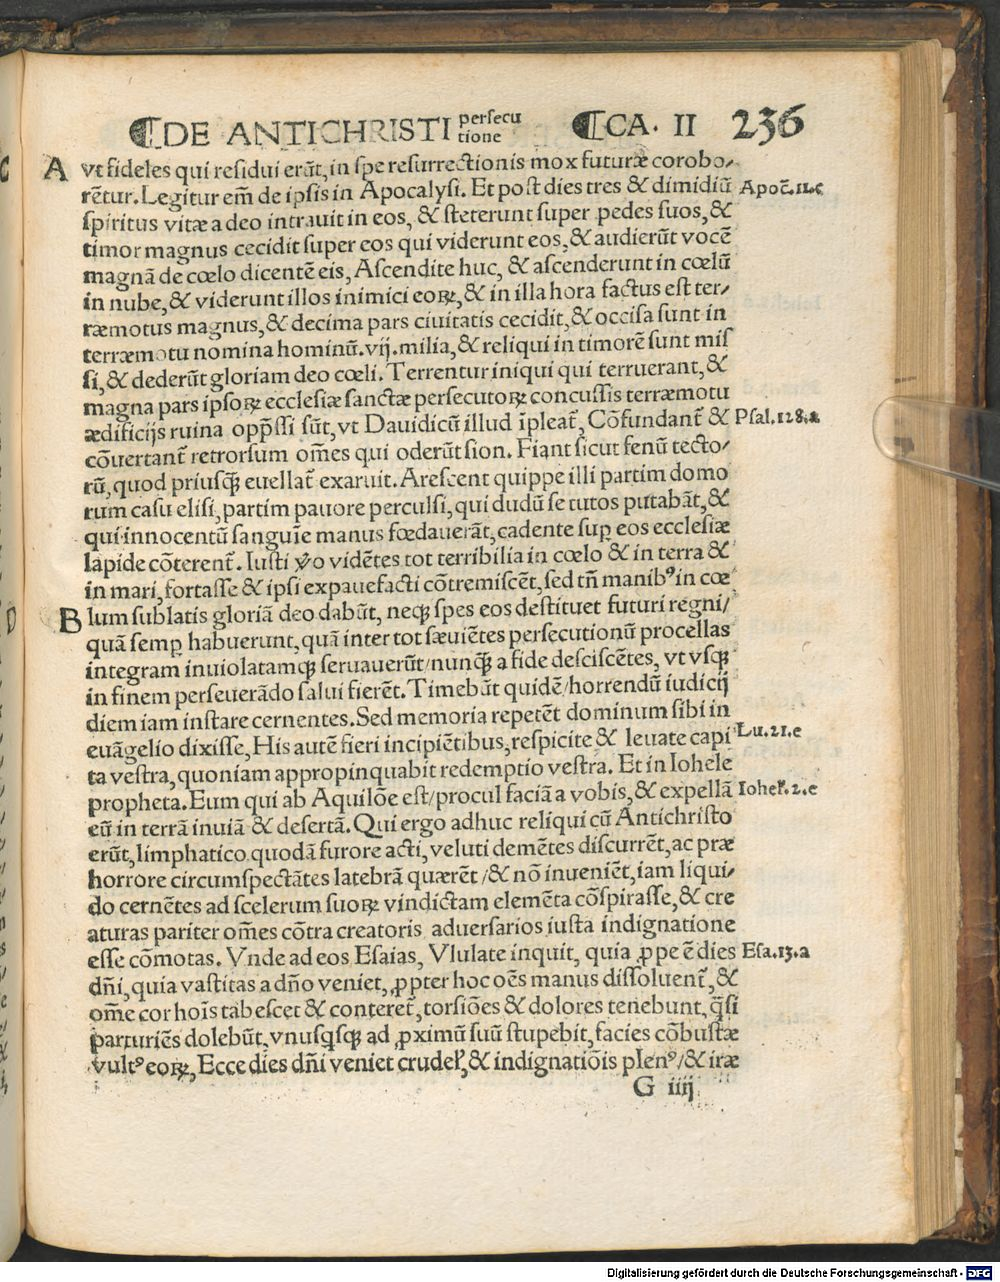 ⸿DE ANTICHRISTI persecu
tione ⸿CA. II 236
A vt fideles qui residui erāt, in spe resurrectionis mox futuræ corobo⸗
rētur. Legitur em̄ de ipsis in Apocalysi. Et post dies tres & dimidiū Apoc̄.11.c
spiritus vitæ a deo intrauit in eos, & steterunt super pedes suos, &
timor magnus cecidit super eos qui viderunt eos, & audierūt vocē
magnā de cœlo dicentē eis, Ascendite huc, & ascenderunt in cœlū
in nube, & viderunt illos inimici eoꝝ, & in illa hora factus est ter⸗
ræmotus magnus, & decima pars ciuitatis cecidit, & occisa sunt in
terræmotu nomina hominū.vij.milia, & reliqui in timorē sunt mis
si, & dederūt gloriam deo cœli. Terrentur iniqui qui terruerant, &
magna pars ipsoꝝ ecclesiæ sanctæ persecutoꝝ concussis terræmotu
ædificijs ruina opp̄ssi sūt, vt Dauidicū illud īpleat̄, Cōfundant̄ & Psal.128.a
cōuertant̄ retrorsum om̄es qui oderūt sion. Fiant sicut fenū tecto⸗
rū, quod priusq̄ȝ euellat̄ exaruit. Arescent quippe illi partim domo
rum casu elisi, partim pauore perculsi, qui dudū se tutos putabāt, &
qui innocentū sanguīe manus fœdauerāt, cadente suꝑ eos ecclesiæ
lapide cōterent̄. Iusti ꝟo vidētes tot terribilia in cœlo & in terra &
in mari, fortasse & ipsi expauefacti cōtremiscēt, sed tn̄ manibꝰ in cœ
B lum sublatis gloriā deo dabūt, neqȝ spes eos destituet futuri regni/
quā semꝑ habuerunt, quā inter tot sæuiētes persecutionū procellas
integram inuiolatamqȝ seruauerūt/nunq̄ȝ a fide desciscētes, vt vsqȝ
in finem perseuerādo salui fierēt. Timebūt quidē/horrendū iudicij
diem iam instare cernentes. Sed memoria repetēt dominum sibi in
euāgelio dixisse, His autē fieri incipiētibus, respicite & leuate capi Lu.21.e
ta vestra, quoniam appropinquabit redemptio vestra. Et in Iohele
propheta. Eum qui ab Aquilōe est/procul faciā a vobis, & expellā Ioheł.2.e
eū in terrā inuiā & desertā. Qui ergo adhuc reliqui cū Antichristo
erūt, limphatico quodā furore acti, veluti demētes discurrēt, ac præ
horrore circumspectātes latebrā quærēt/& nō inueniēt, iam liqui⸗
do cernētes ad scelerum suoꝝ vindictam elemēta cōspirasse, & cre
aturas pariter om̄es cōtra creatoris aduersarios iusta indignatione
esse cōmotas. Vnde ad eos Esaias, Vlulate inquit, quia ꝓpe ē dies Esa.13.a
dn̄i, quia vastitas a dn̄o veniet, ꝓpter hoc oēs manus dissoluent̄, &
om̄e cor hoīs tabescet & conteret̄, torsiōes & dolores tenebunt, q̄si
parturiēs dolebūt, vnusqsqȝ ad ꝓximū suū stupebit, facies cōbustæ
vultꝰ eoꝝ, Ecce dies dn̄i veniet crudeł, & indignatiōis plenꝰ/& iræ
G iiij
Digitalisierung gefördert durch die Deutsche Forschungsgemeinschaft - DFG